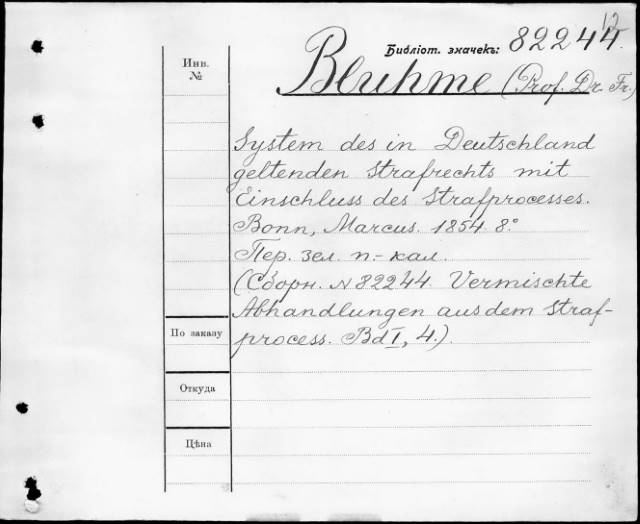 12
Библіот. значекъ: 82244.
Инв.
№
Bluhme (Prof. Dr. Fr.)
System des in Deutschland
geltenden Strafrechts mit
Einschluss des Strafprocesses.
Bonn, Marcus. 1854. 8.°
Пер. зел. п.-кал.
(Сборн. № 82244. Vermischte
Abhandlungen aus dem Straf-
process. Bd I, 4.).
По заказу
Откуда
Цѣна